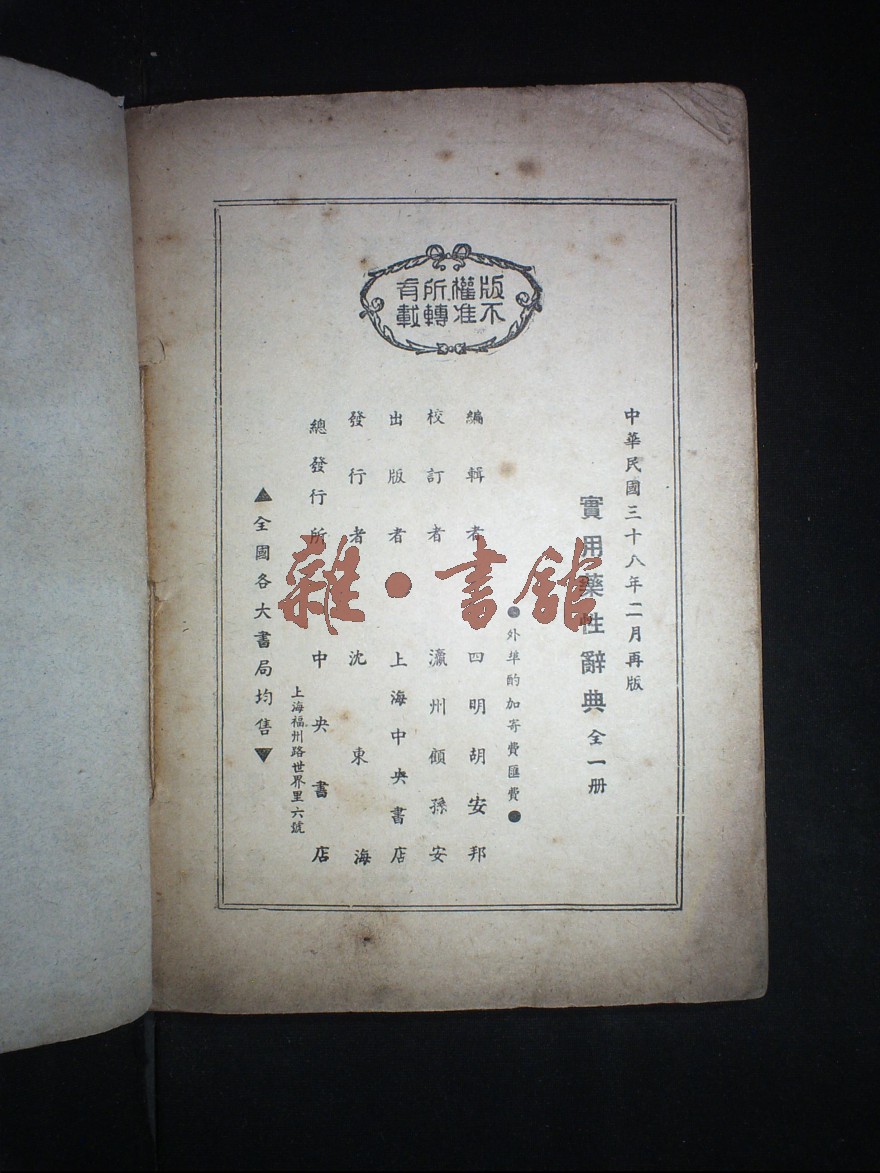 版權所有
不准轉載
中華民國三十八年二月再版
實用藥性辭典 全一册
●外埠酌加寄費匯費●
編輯者 四明胡安邦
校訂者 瀛州顧孫安
出版者 上海中央書店
發行者 沈東海
總發行所 中央書店
上海福州路世界里六號
▲全國各大書局均售▼
雜·書館